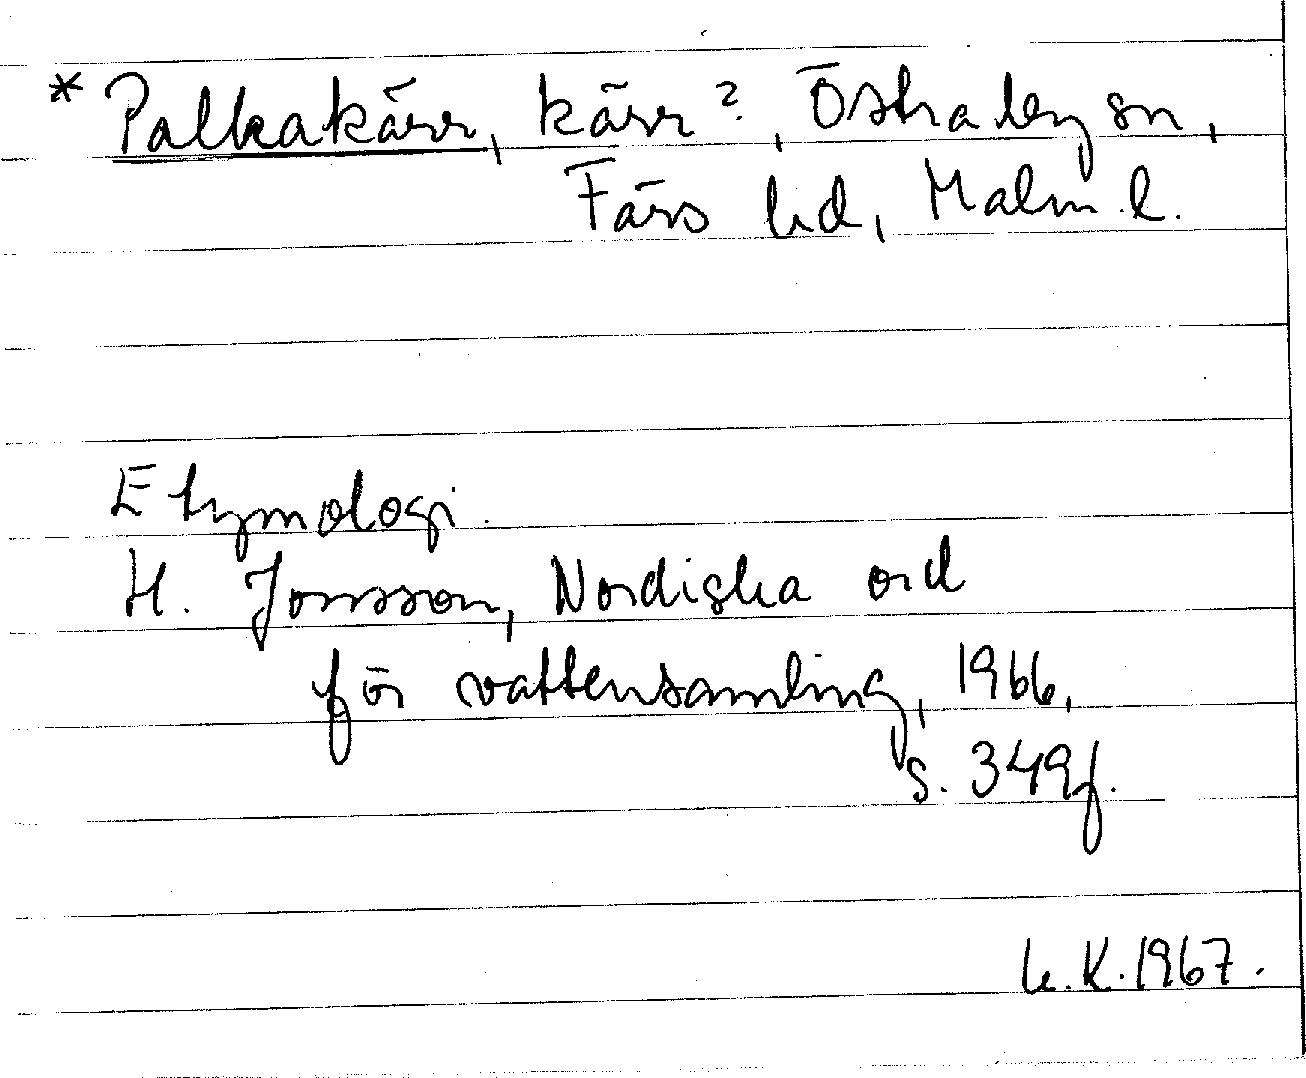 * Palkakärr, kärr?, Östraby sn,
Färs hd, Malm.l.
Etymologi.
H. Jonsson, Nordiska ord
för vattensamling, 1966,
s. 349f.
K. 1967.